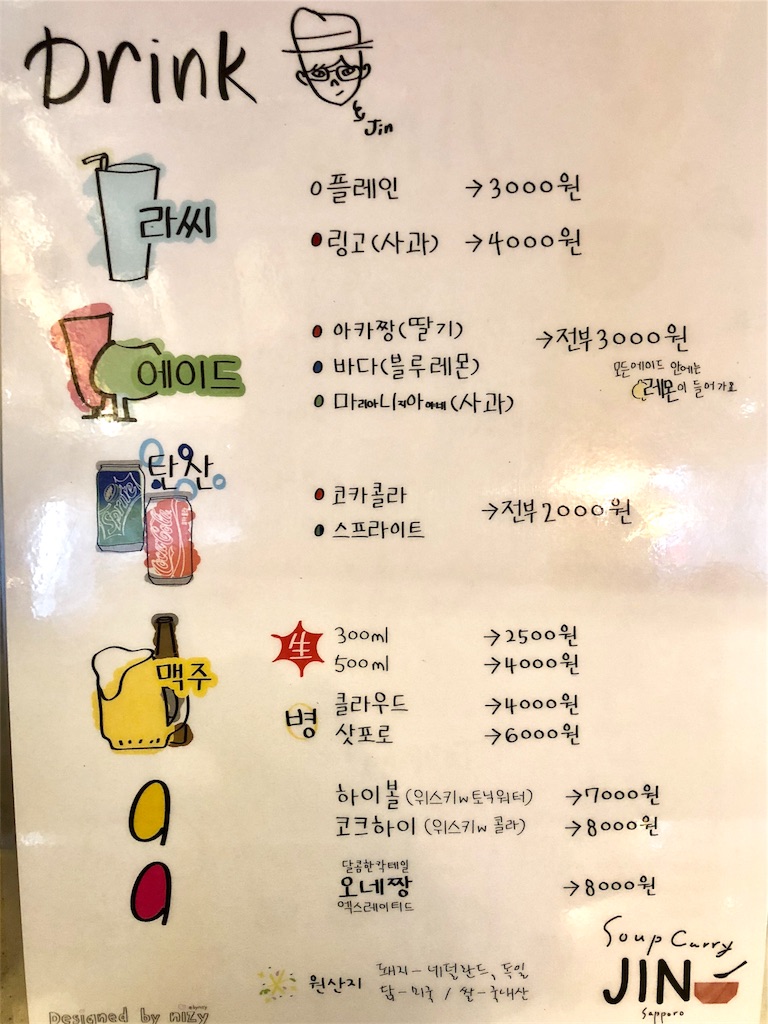 Drink
by Jin
라씨
플레인 →3000원
링고(사과) →4000원
에이드
아카짱(딸기)
바다(블루레몬)
마리아니지아아네(사과)
→전부3000원
모든에이드 안에는
레몬이 들어가요
탄산
Sprite
Coca-Cola
코카콜라
스프라이트
→전부2000원
맥주
生
300ml →2500원
500ml →4000원
병
클라우드 →4000원
삿포로 →6000원
하이볼 (위스키w토닉워터) →7000원
코크하이 (위스키w콜라) →8000원
달콤한칵테일
오네짱 →8000원
엑스레이티드
원산지
돼지-네덜란드, 독일
닭-미국 / 쌀-국내산
Soup Curry
JIN
Sapporo
Designed by nizy